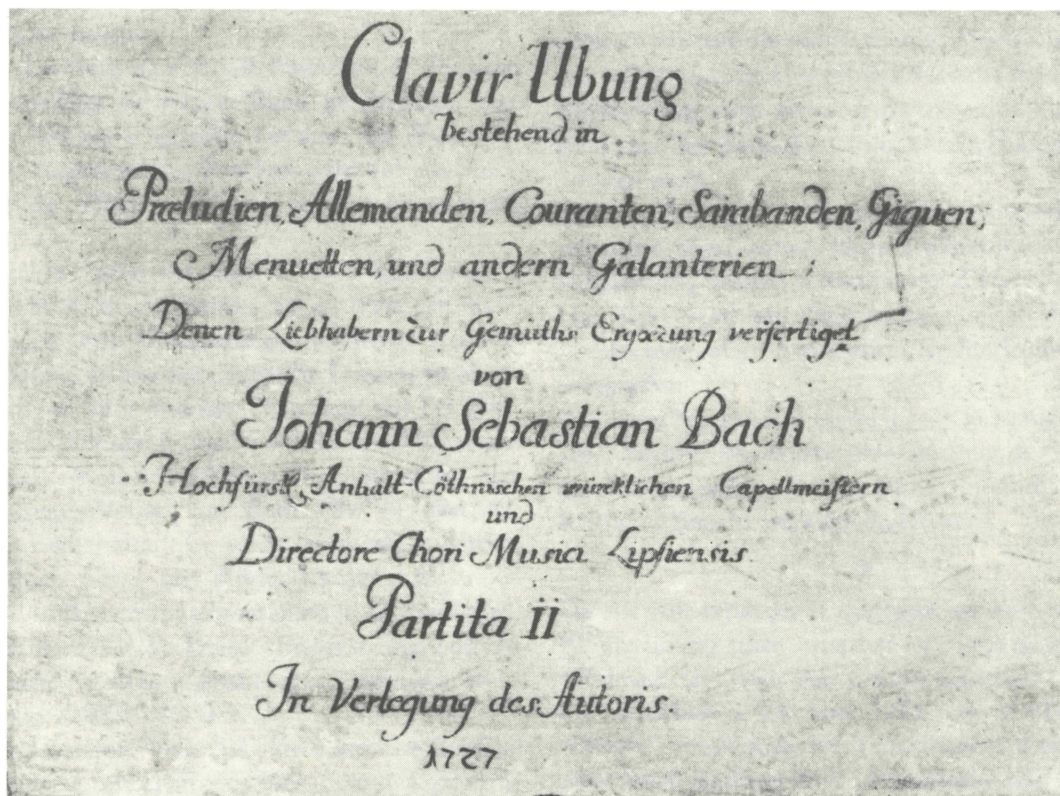 Clavir Ubung
bestehend in
Præludien, Allemanden, Couranten, Sarabanden, Giguen,
Menuetten, und andern Galanterien;
Denen Liebhabern zur Gemüths Ergœzung verfertiget
von
Johann Sebastian Bach
Hochfürstl. Anhalt-Cöthnischen würcklichen Capellmeistern
und
Directore Chori Musici Lipsiensis.
Partita II
In Verlegung des Autoris.
1727